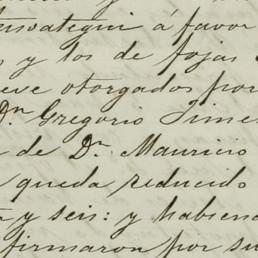 á favor
y los de fojas
otorgados por
Dn Gregorio Jime
de Dn Mauricio
queda reducido
y seis: y habiend
firmaron por su